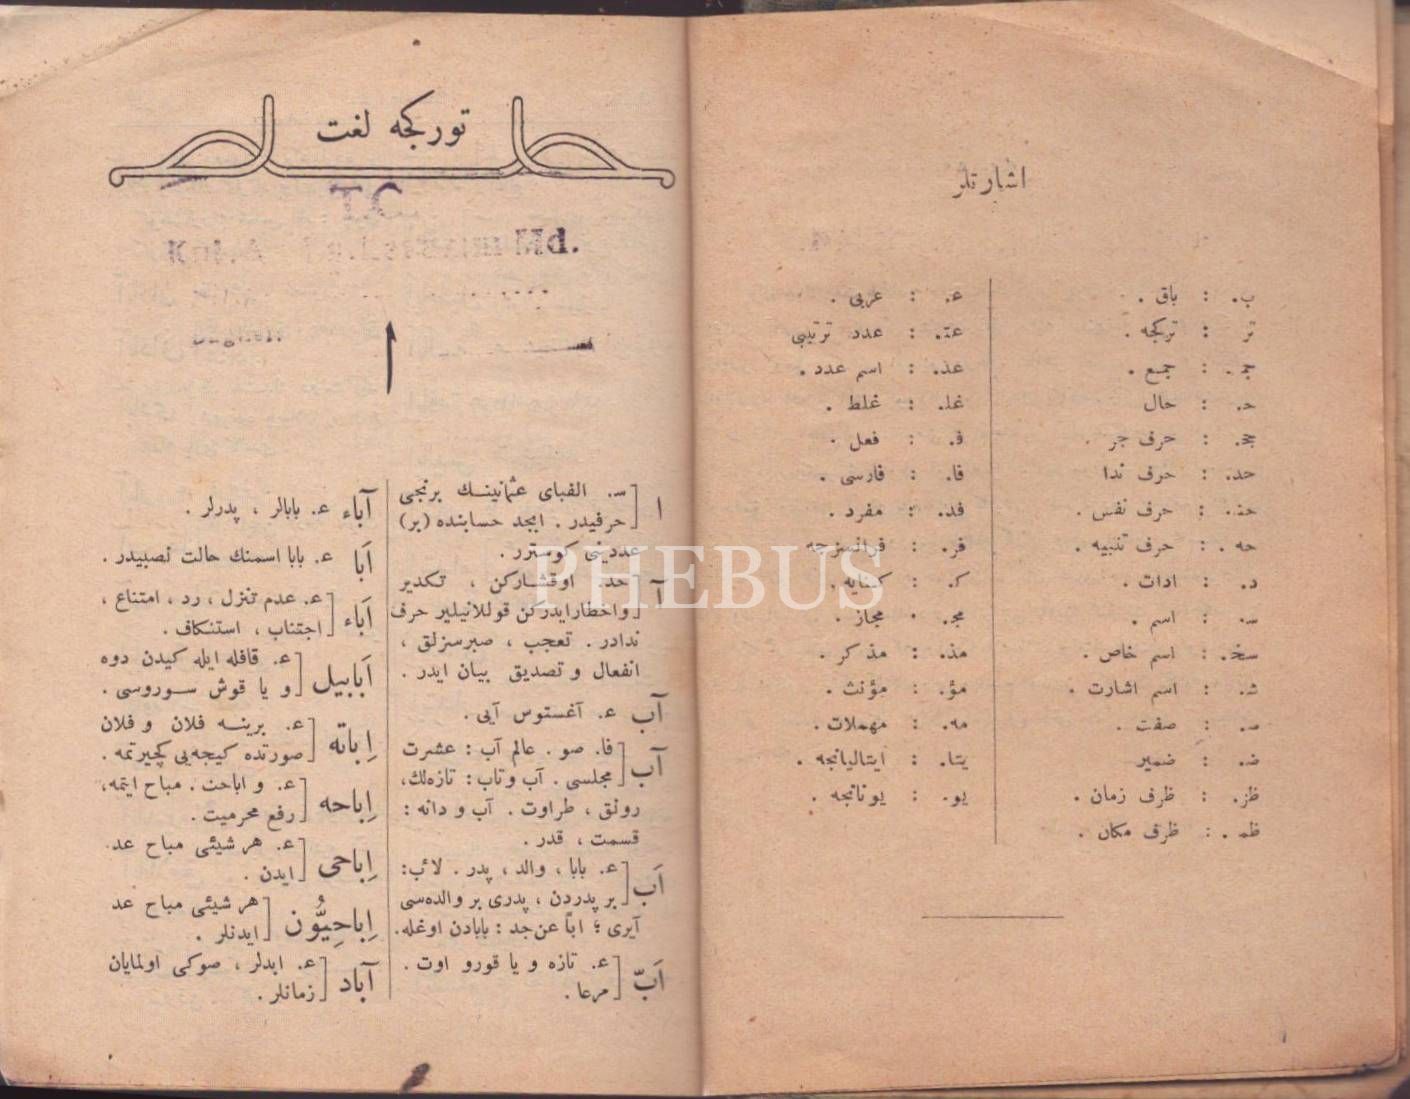 اشارتلر
ب. : باق .
تر : تركجه .
جم . : جمع .
ح. : حال
حج. : حرف جر .
حد. : حرف ندا
حن. : حرف نفس .
حه . : حرف تنبيه .
د. : ادات .
س. : اسم .
سخ. : اسم خاص .
ش. : اسم اشارت .
ص. : صفت .
ض. : ضمير
ظز. : ظرف زمان .
ظم . : ظرف مكان .
ع. : عربى .
عت. : عدد ترتيبى
عد. : اسم عدد .
غل. : غلط .
ف. : فعل .
فا. : فارسى .
فد. : مفرد .
فر. : فرانسزجه
ك. : كنايه .
مج. : مجاز .
مذ. : مذكر .
مؤ. : مؤنث .
مه. : مهملات .
يتا. : ايتاليانجه .
يو. : يونانجه .
توركجه لغت
T.C
Md.
ا
ا [س. الفباى عثمانينك برنجى
حرفيدر . ابجد حسابنده (بر)
عددينى كوسترر .
آ [حد. اوقشاركن ، تكدير
واخطار ايدركن قوللانيلير حرف
ندادر . تعجب ، صبرسزلق ،
انفعال و تصديق بيان ايدر .
آب ع. آغستوس آيى .
آب [فا. صو . عالم آب : عشرت
مجلسى . آب وتاب : تازه‌لك،
رونق ، طراوت . آب و دانه :
قسمت ، قدر .
اَب [ع. بابا ، والد ، پدر . لائب :
بر پدردن ، پدرى بر والده‌سى
آيرى ؛ اباً عن جد : بابادن اوغله.
اَبّ [ع. تازه و يا قورو اوت .
مرعا.
آباء ع. بابالر ، پدرلر .
اَبا ع. بابا اسمنك حالت نصبيدر .
اَباء [ع. عدم تنزل ، رد ، امتناع ،
اجتناب ، استنكاف .
اَبابيل [ع. قافله ايله كيدن دوه
و يا قوش سوروسى .
اِباته [ع. برينه فلان و فلان
صورتده كيجه‌يى كچيرتمه .
اِباحه [ع. و اباحت . مباح ايتمه،
رفع محرميت .
اِباحى [ع. هر شيئى مباح عد
ايدن .
اِباحِيُّون [هر شيئى مباح عد
ايدنلر .
آباد [ع. ابدلر ، صوكى اولمايان
زمانلر .
PHEBUS